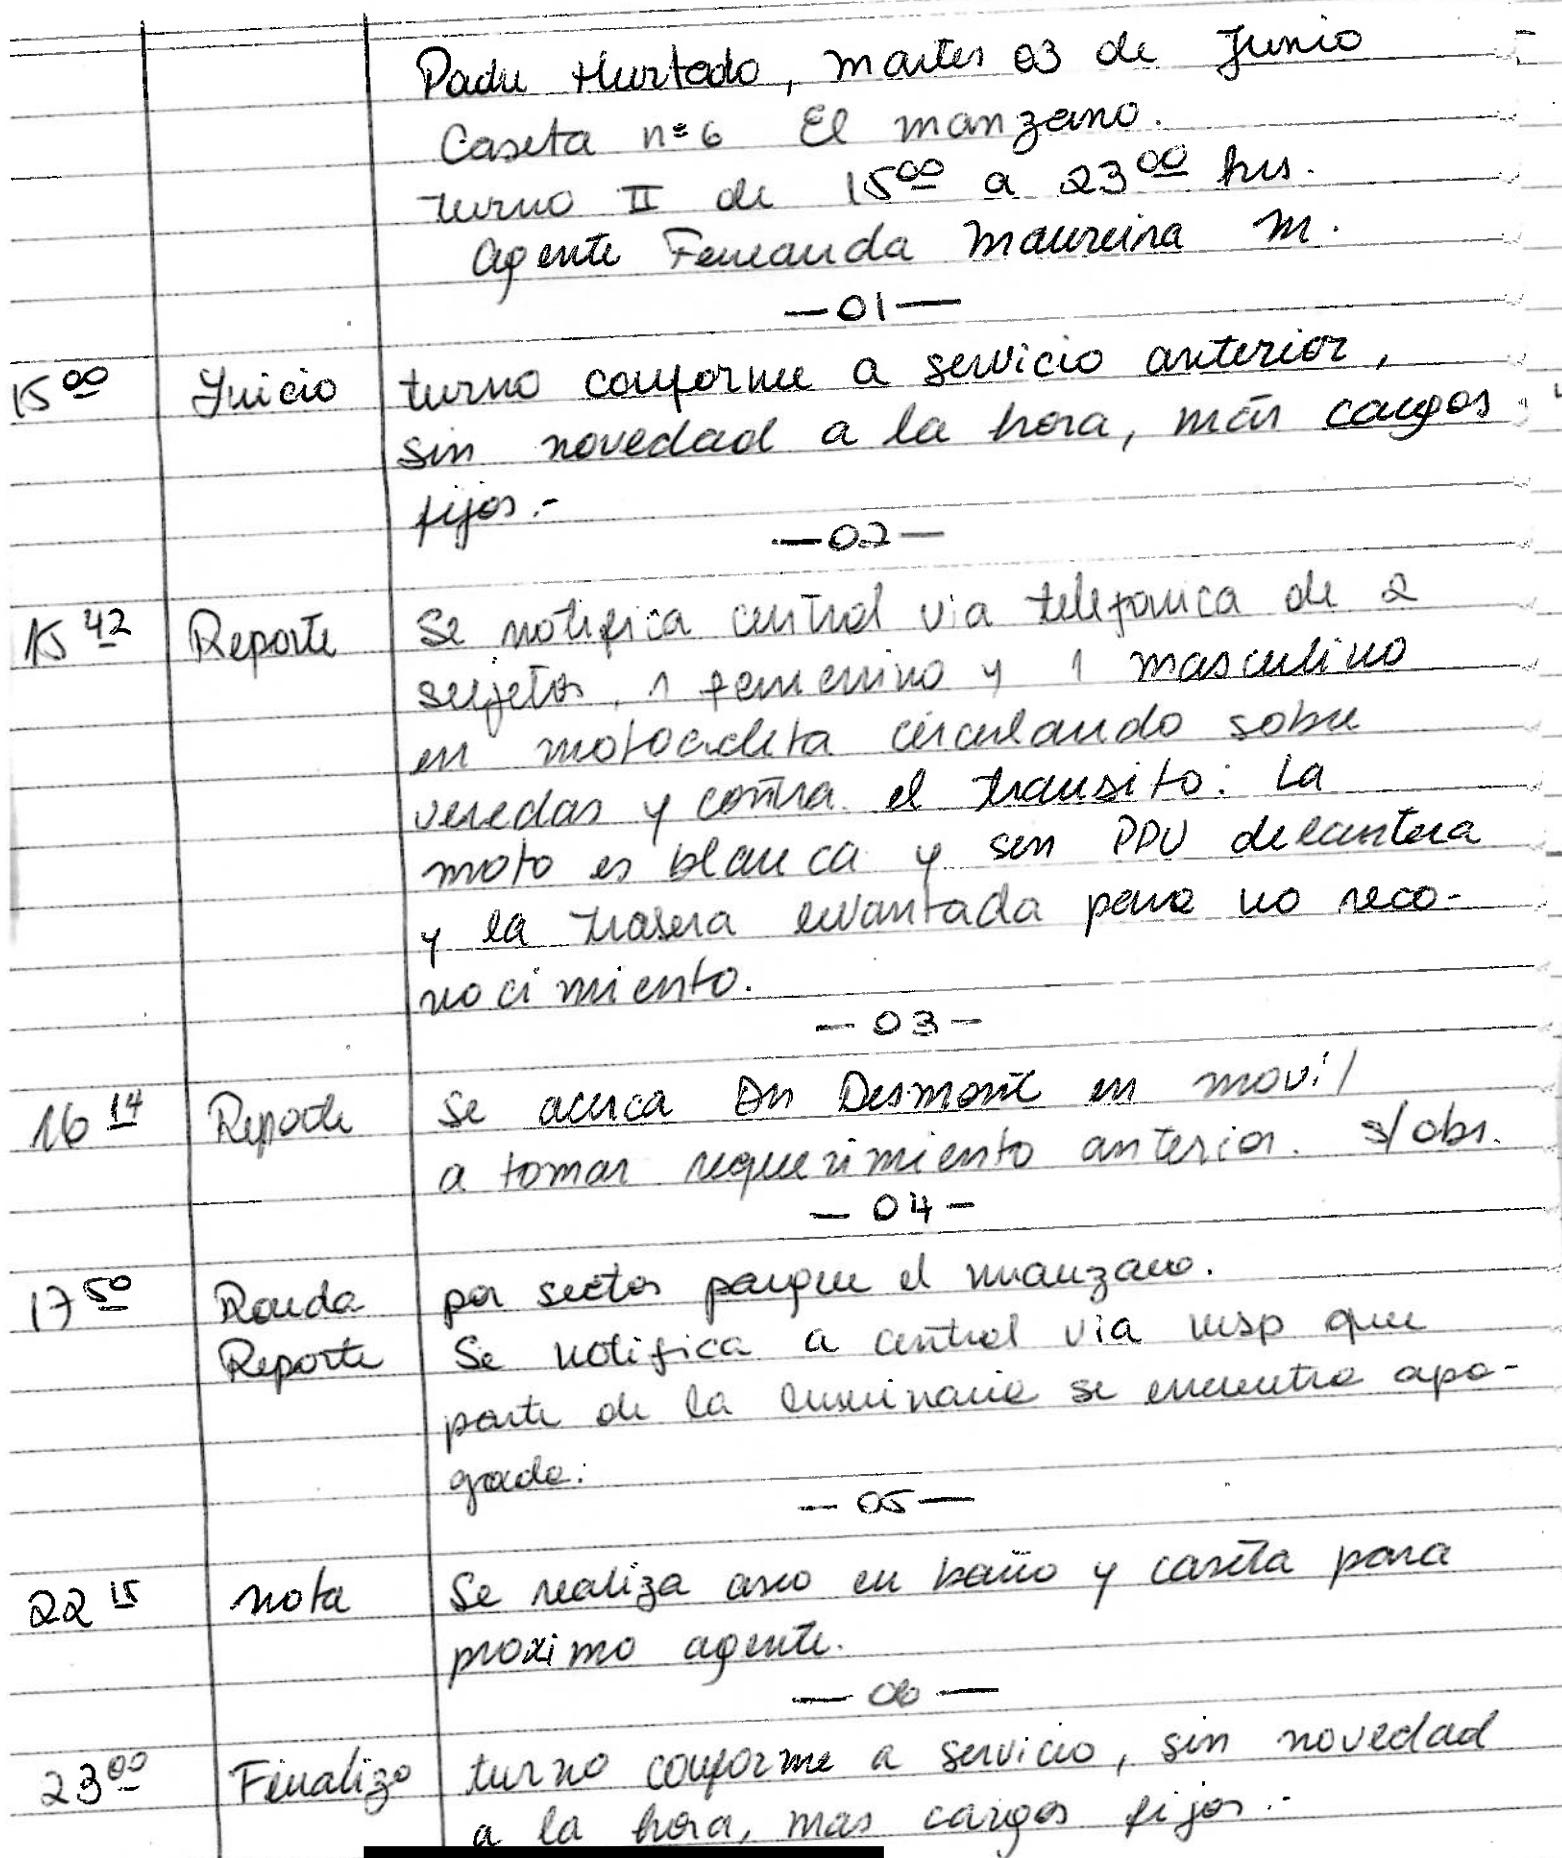 Padre Hurtado, martes 03 de Junio
Caseta n=6 El manzano.
turno II de 15 00 a 23 00 hrs.
agente Fernanda Maureira M.
—01—
15 00 Inicio turno conforme a servicio anterior,
sin novedad a la hora, más cargos
fijos.-
—02—
15 42 Reporte Se notifica central via telefonica de 2
sujetos, 1 femenino y 1 masculino
en motocicleta circulando sobre
veredas y contra el transito. La
moto es blanca y sin PPU delantera
y la trasera levantada para no reco-
nocimiento.
—03—
16 14 Reporte Se acerca Dn Desmont en movil
a tomar requerimiento anterior. s/obs.
—04—
17 50 Ronda por sector parque el manzano.
Reporte Se notifica a central via wsp que
parte de la luminaria se encuentra apa-
gada.
—05—
22 15 nota Se realiza aseo en baño y caseta para
proximo agente.
—06—
23 00 Finalizo turno conforme a servicio, sin novedad
a la hora, mas cargos fijos.-